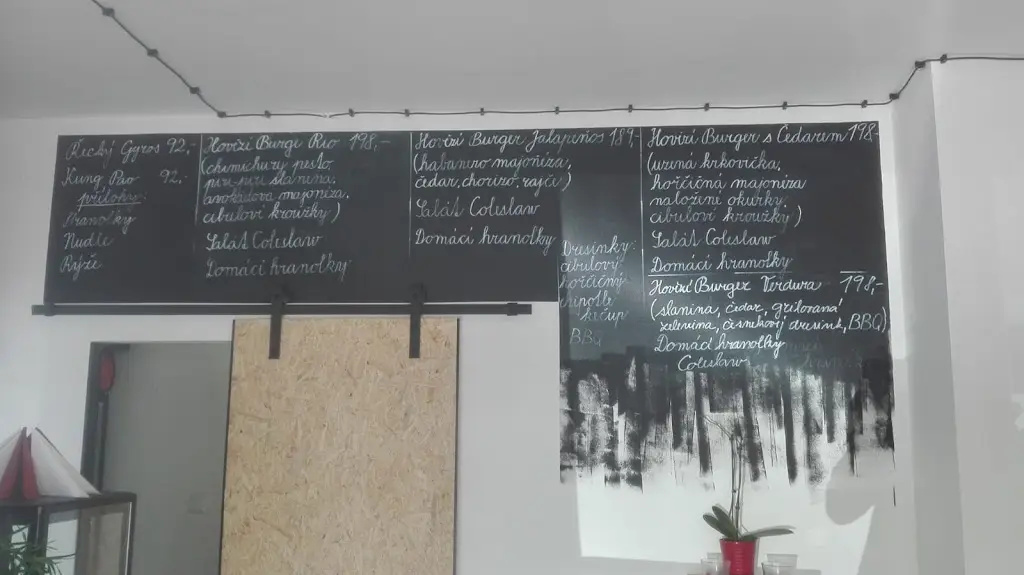 Řecký Gyros 92,-
Kung Pao 92,-
přílohy:
Hranolky
Nudle
Rýže
Hovězí Burge Rio 198,-
(chimichury pesto,
piri-piri slanina,
avokádová majonéza,
cibulové kroužky)
Salát Coleslaw
Domácí hranolky
Hovězí Burger Jalapeños 189,-
(habanero majonéza,
čedar, chorizo, rajče)
Salát Coleslaw
Domácí hranolky
Dresinky:
cibulový
hořčičný
chipotle
kečup
BBQ
Hovězí Burger s Čedarem 198,-
(uzená krkovička,
hořčičná majonéza
naložené okurky,
cibulové kroužky)
Salát Coleslaw
Domácí hranolky
Hovězí Burger Verdura 198,-
(slanina, čedar, grilovaná
zelenina, česnekový dresink, BBQ)
Domácí hranolky
Coleslaw